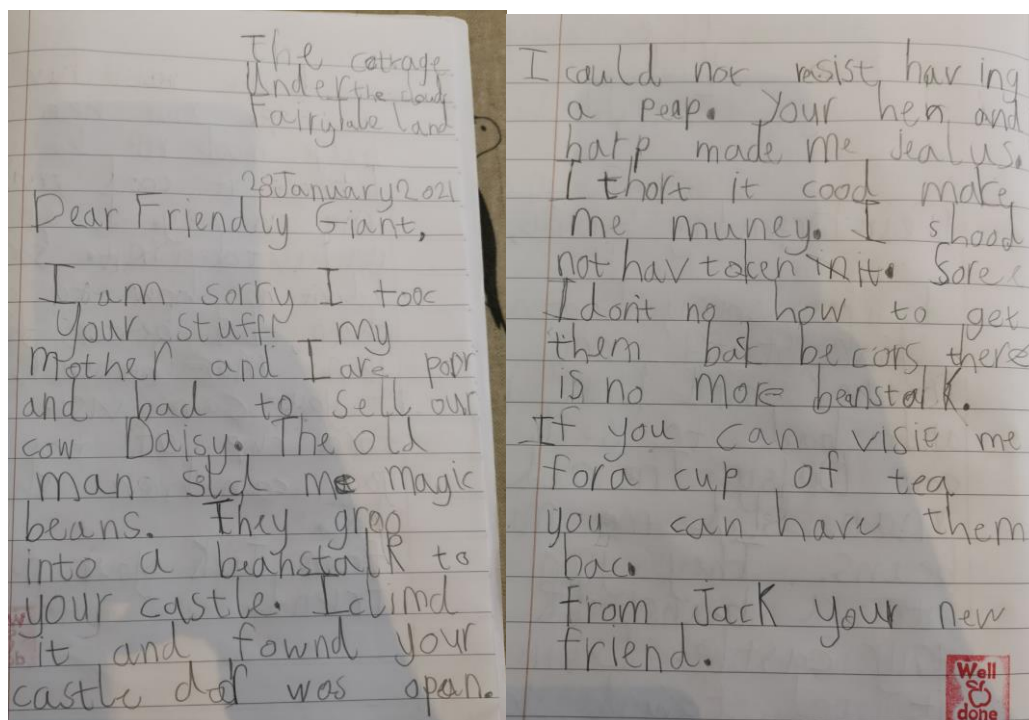 The cottage
Under the clouds
Fairytale land
28 January 2021
Dear Friendly Giant,
I am sorry I tooc
your stuff my
mother and I are poor
and had to sell our
cow Daisy. The old
man sld me magic
beans. They groo
into a beanstalk to
your castle. I climd
it and fownd your
castle dor was opan.
I could not rasist having
a peap. Your hen and
harp made me jealus.
I thort it cood make
me muney. I shood
not hav taken it. Sore
I don't no how to get
them bak becors there
is no more beanstalk.
If you can visit me
for a cup of tea
you can have them
bac.
from Jack your new
friend.
Well
done